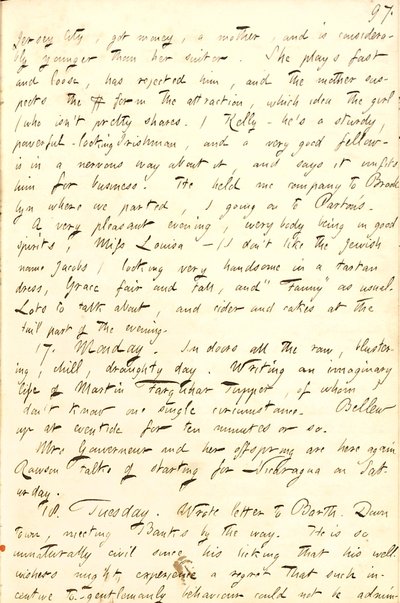 97.
Jersey City, got money, a mother, and is considera-
bly younger than her suitor. She plays fast
and loose, has rejected him, and the mother sus-
pects the $ form the attraction, which idea the girl
(who isn't pretty shares.) Kelly - he's a sturdy,
powerful-looking Irishman, and a very good fellow -
is in a nervous way about it, and says it unfits
him for business. He held me company to Brook
lyn where we parted, I going on to Parton's.
A very pleasant evening, everybody being in good
spirits, Miss Louisa - (I don't like the Jewish
name Jacobs) looking very handsome in a tartan
dress, Grace fair and tall, and "Fanny" as usual.
Lots to talk about, and cider and cakes at the
tail part of the evening.
17. Monday. In doors all the raw, bluster-
ing, chill, draughty day. Writing an imaginary
life of Martin Farquhar Tupper, of whom I
don't know one single circumstance. Bellew
up at eventide for ten minutes or so.
Mrs Gouverneur and her offspring are here again
Rawson talks of starting for Nicaragua on Sat-
urday.
18. Tuesday. Wrote letter to Barth. Down
town, meeting Banks by the way. He is so
unnaturally civil since his licking that his well
wishers might experience a regret that such in-
centive to gentlemanly behaviour could not be admin-